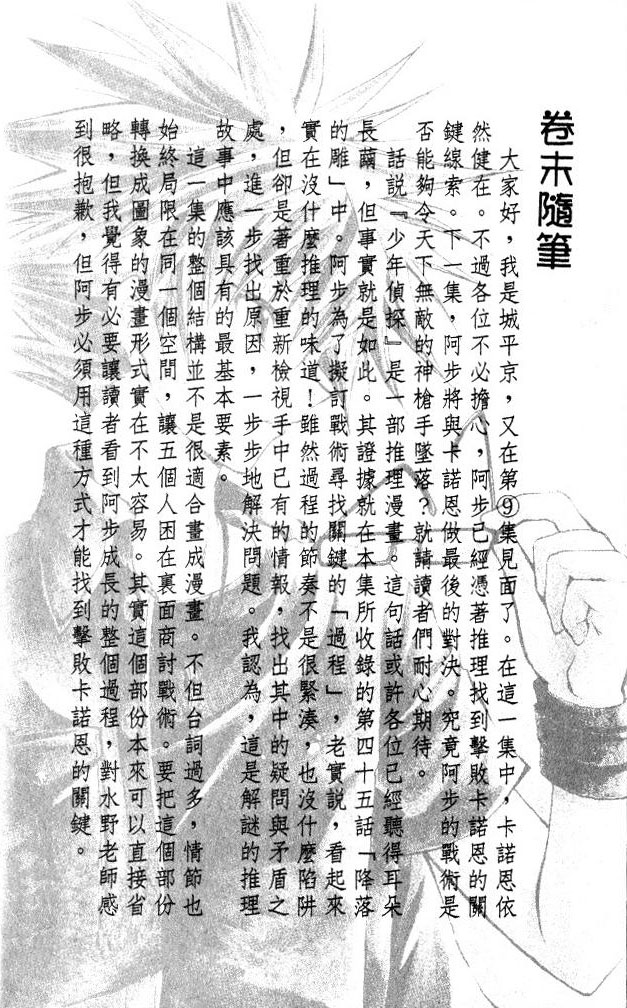 卷末隨筆
大家好，我是城平京，又在第⑨集見面了。在這一集中，卡諾恩依
然健在。不過各位不必擔心，阿步已經憑著推理找到擊敗卡諾恩的關
鍵線索。下一集，阿步將與卡諾恩做最後的對決。究竟阿步的戰術是
否能夠令天下無敵的神槍手墜落？就請讀者們耐心期待。
話說『少年偵探』是一部推理漫畫。這句話或許各位已經聽得耳朵
長繭，但事實就是如此。其證據就在本集所收錄的第四十五話「降落
的雕」中。阿步為了擬訂戰術尋找關鍵的「過程」，老實說，看起來
實在沒什麼推理的味道！雖然過程的節奏不是很緊湊，也沒什麼陷阱
，但卻是著重於重新檢視手中已有的情報，找出其中的疑問與矛盾之
處，進一步找出原因，一步步地解決問題。我認為，這是解謎的推理
故事中應該具有的最基本要素。
這一集的整個結構並不是很適合畫成漫畫。不但台詞過多，情節也
始終局限在同一個空間，讓五個人困在裏面商討戰術。要把這個部份
轉換成圖象的漫畫形式實在不太容易。其實這個部份本來可以直接省
略，但我覺得有必要讓讀者看到阿步成長的整個過程，對水野老師感
到很抱歉，但阿步必須用這種方式才能找到擊敗卡諾恩的關鍵。